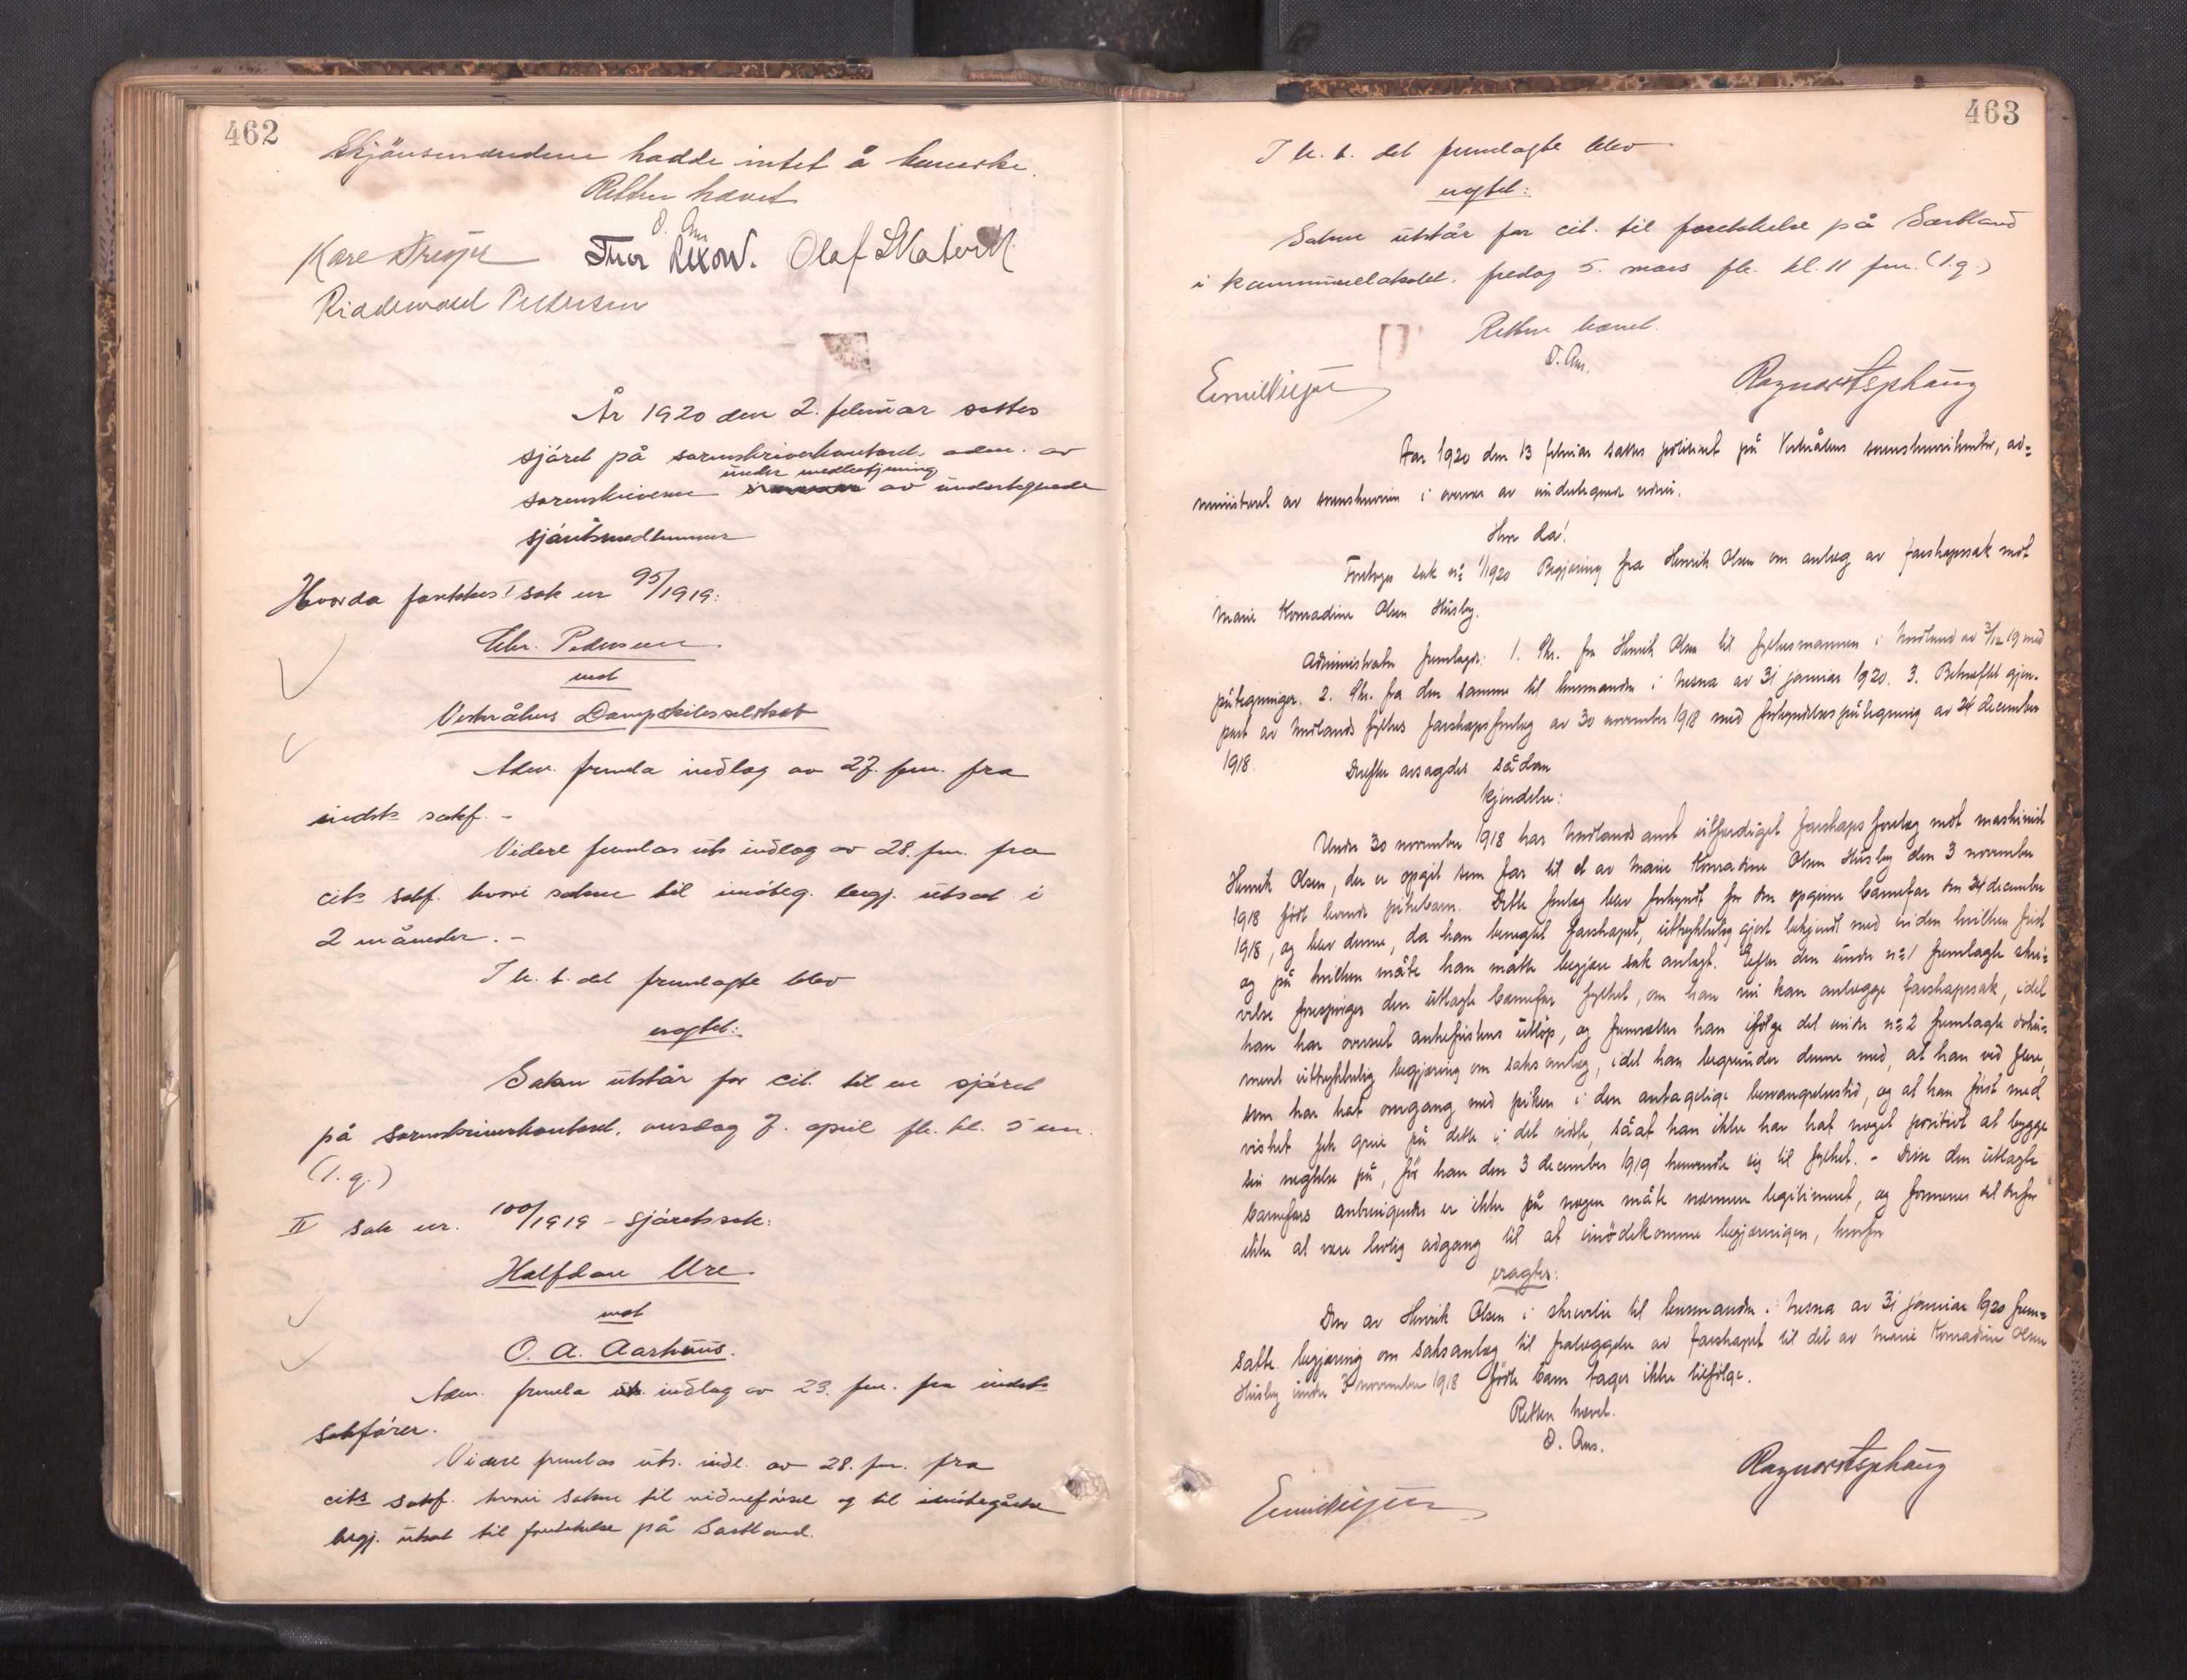 462
Skjönsmændene hadde intet å bemerke.
Retten hævet
O. Am.
Kåre Dreyer Thor Lexow. Olaf
Pedersen
År 1920 den 2. februar sattes
sjöret på sorenskriverkontoret, adm. av
sorenskriveren under medbetjening av undertegnede
sjöretsmedlemmer
Hvorda foretokes: I sak nr 95/1919:
Chr. Pedersen
mot
Vesterålens Dampskibsselskab
Adm. fremla indlæg av 27. f.m. fra
indst.s sakf. -
Videre fremlas uts. indlæg av 28. f.m. fra
cit.s sakf. hvori saken til imöteg. begj. utsat i
2 måneder. -
I h. t. det fremlagte blev
eragtet:
Saken utstår for cit. til en sjöret
på sorenskriverkontoret, onsdag 7. april fk. kl. 5 em.
(l. q.)
II sak nr. 100/1919 - sjöretssak:
Halfdan Ure
mot
O. A. Aarhuus.
Adm. fremla indlæg av 23. f.m. fra indst.s
sakförer.
Videre fremlas uts. indl. av 28. f.m. fra
cit.s sakf. hvori saken til vidneförsel og til imötegåelse
begj. utsat til foretakelse på Sortland.
463
I h. t. det fremlagte blev
eragtet:
Saken utstår for cit. til foretakelse på Sortland
i kommunelokalet, fredag 5. mars fk. kl. 11 fm. (l. q.)
Retten hævet.
O. Am.
Ragnar Asphaug
Aar 1920 den 13 februar sattes politiret på Vesterålens sorenskriverkontor, ad-
ministreret av sorenskriveren i overvær av undertegnede vidner.
Hvor da!
Foretoges sak no 1/1920 Begjæring fra Henrik Olsen om anlæg av farskapssak mot
Marie Konradine Olsen Husby.
Administrator fremlagde: 1. Skr. fra Henrik Olsen til fylkesmannen i Nordland av 3/12 19 med
påtegninger. 2. Skr. fra den samme til lensmanden i Nesna av 31 januar 1920. 3. Bekræftet gjen-
part av Nordlands fylkes farskapsforelæg av 30 november 1918 med forkyndelsespåtegning av 24 december
1918. Derefter avsagdes sådan
kjendelse:
Under 30 november 1918 har Nordlands amt utfærdiget farskapsforelæg mot maskinist
Henrik Olsen, der er opgit som far til et av Marie Konradine Olsen Husby den 3 november
1918 födt levende pikebarn. Dette forelæg blev forkyndt for den opgivne barnefar den 24 december
1918, og blev denne, da han benegtet farskapet, uttrykkelig gjort bekjendt med inden hvilken frist
og på hvilken måte han måtte begjære sak anlagt. Efter den under no 1 fremlagte skri-
velse forespörger den utlagte barnefar fylket, om han nu kan anlægge farskapssak, idet
han har overset ankefristens utlöp, og fremsætter han ifölge det under no 2 fremlagte doku-
ment uttrykkelig begjæring om saksanlæg, idet han begrunder denne med, at han ved flere,
som har hat omgang med piken i den antagelige besvangrelsestid, og at han först med
vishet fik greie på dette i det sidste, såat han ikke har hat noget positivt at bygge
sin negtelse på, för han den 3 december 1919 henvendte sig til fylket. - Disse den utlagte
barnefars anbringender er ikke på nogen måte nærmere legitimeret, og formenes det derfor
ikke at være lovlig adgang til at imödekomme begjæringen, hvorfor
eragtes:
Den av Henrik Olsen i skrivelse til lensmanden i Nesna av 31 januar 1920 frem-
satte begjæring om saksanlæg til fralæggelse av farskapet til det av Marie Konradine Olsen
Husby under 3 november 1918 födte barn tages ikke tilfölge.
Retten hævet.
O. Am.
Ragnar Asphaug